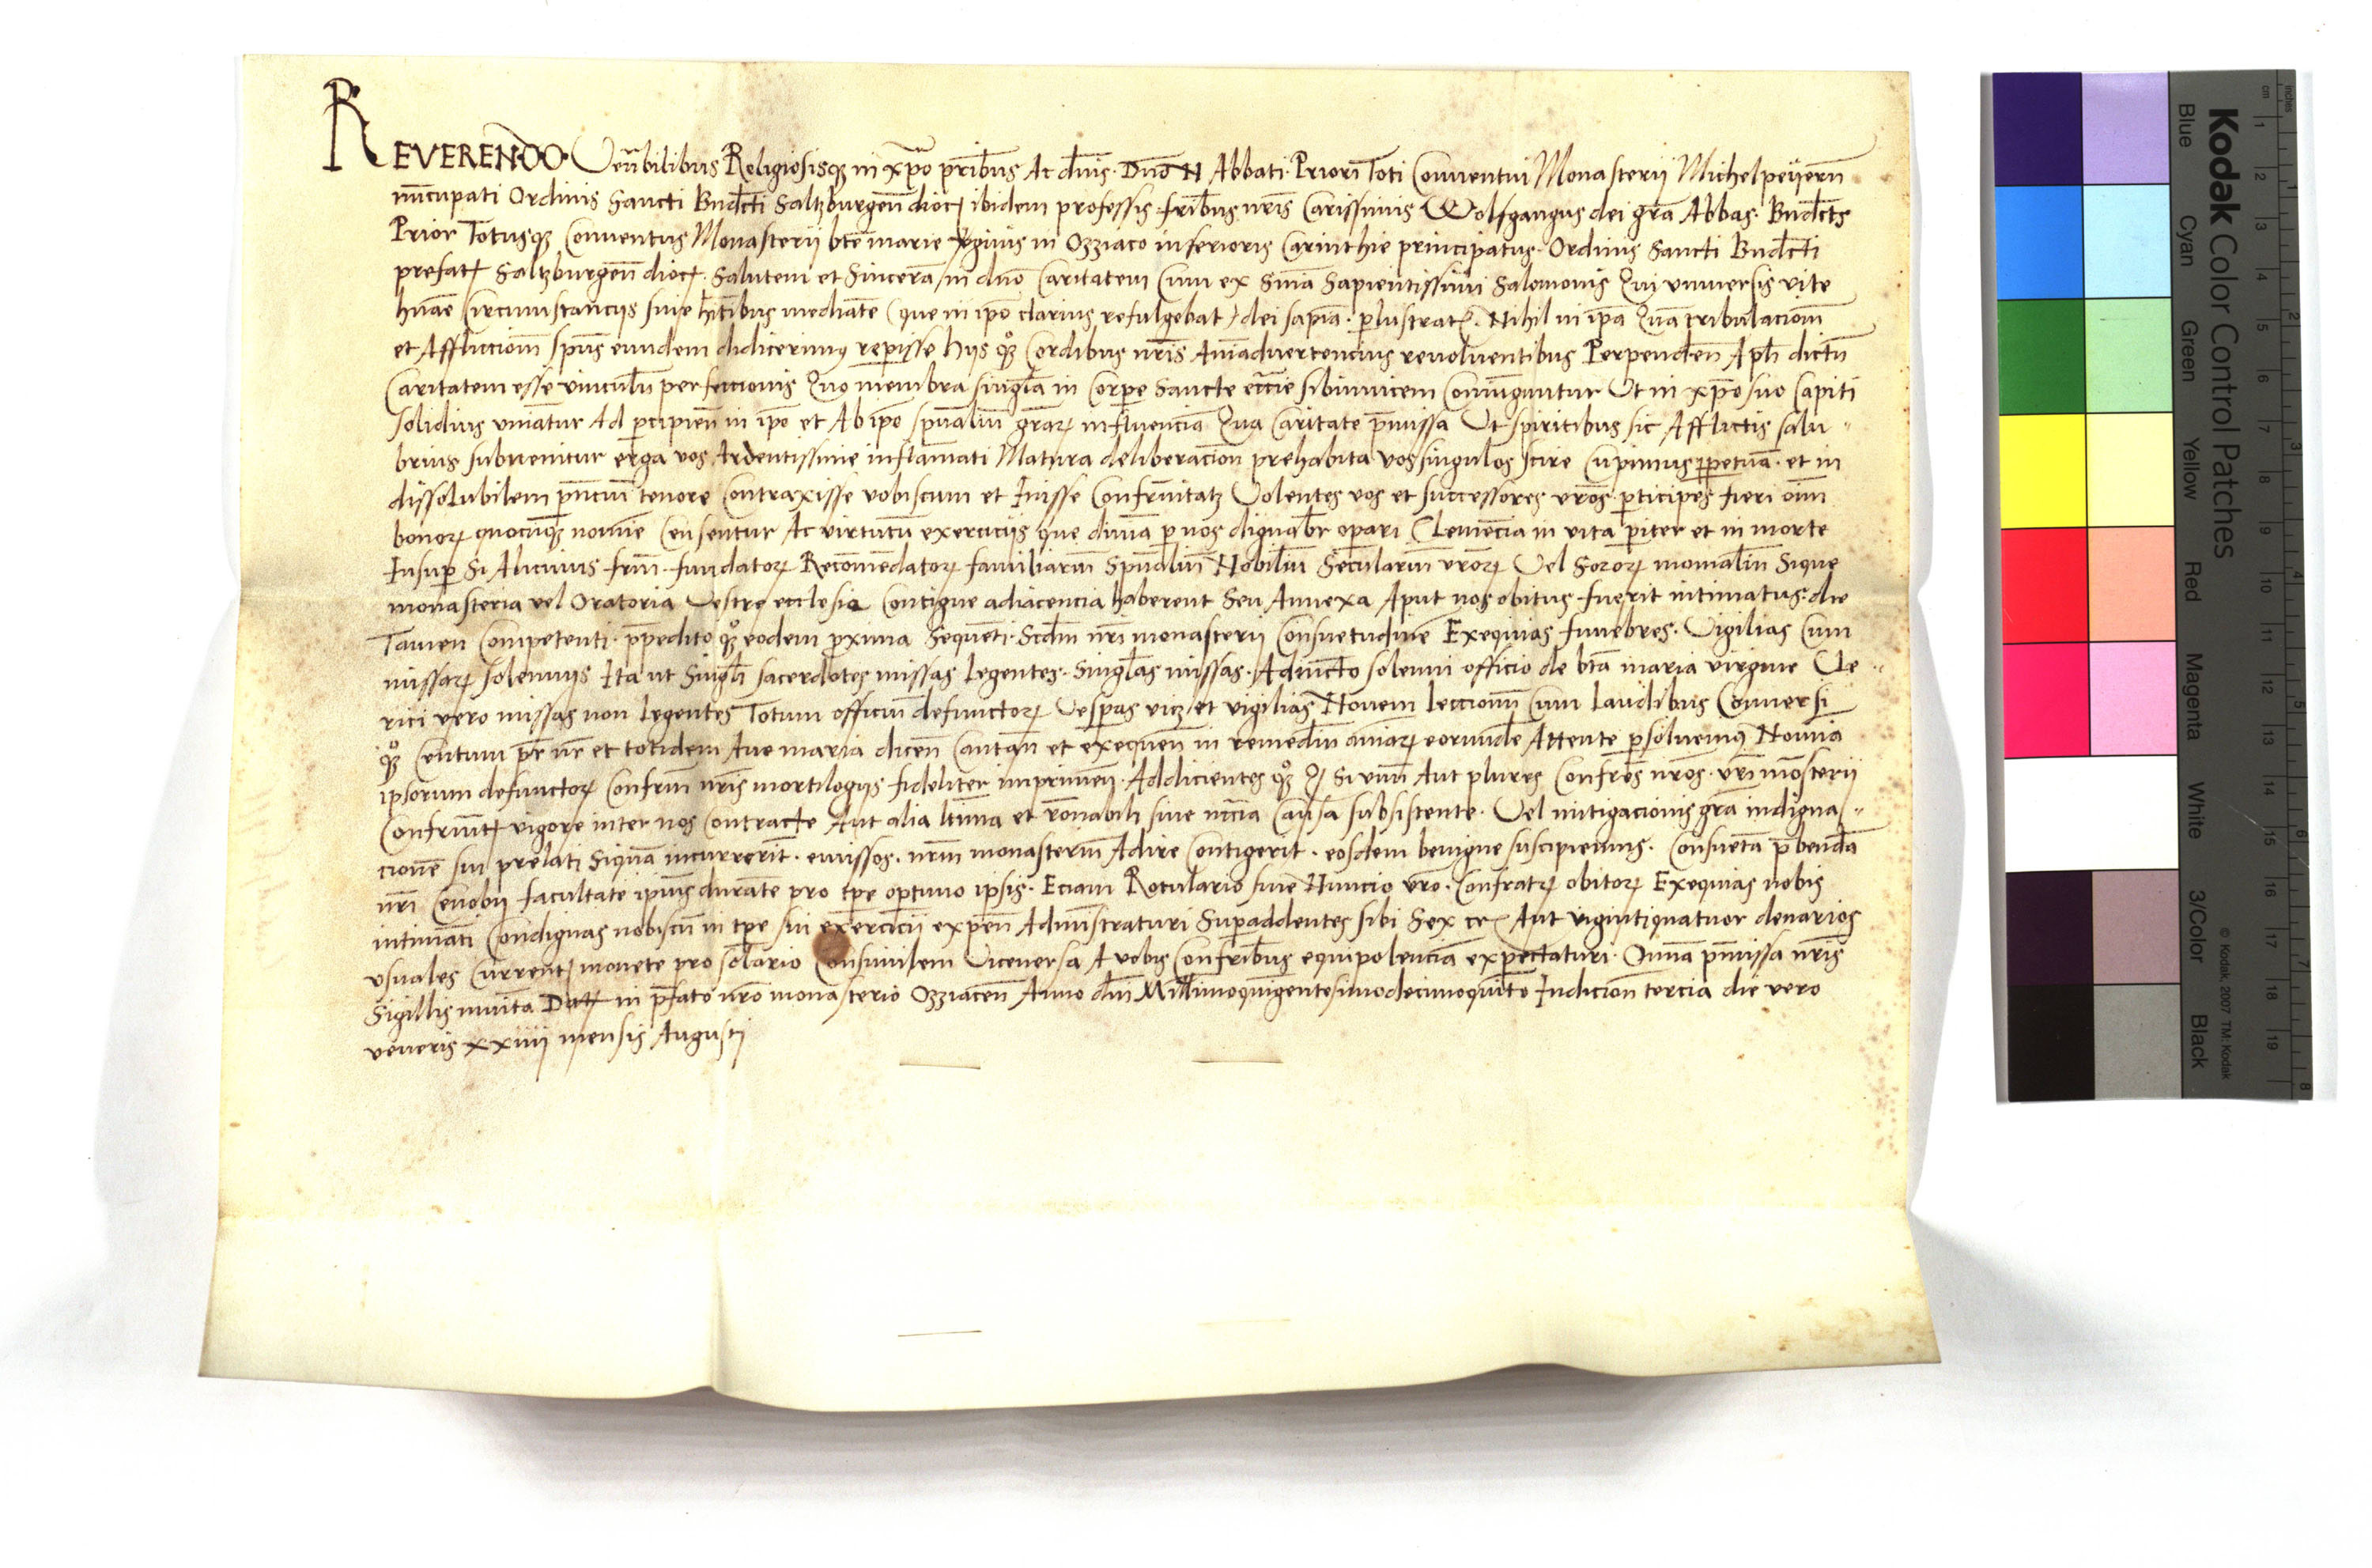 REVERENDO. Ven̄bilibus Religiosisqꝫ in xp̄o pr̄ibus Ac dn̄is. Dn̄o N Abbati. Priori Toti Conuentui Monasterij Michelpeÿern̄
nūcupati Ordinis Sancti Bn̄dc̄ti Saltzburgen̄ dioc̄ ibidem professis fr̄ibus nr̄is Carissimis Wolfgangus dei gr̄a Abbas. Bn̄dc̄ts
Prior Totusqꝫ Conuentus Monasterij bt̄e marie v̄ginis in Ozziaco inferioris Carinthie principatus. Ordinis Sancti Bn̄dc̄ti
prefatȩ Saltzburgen̄ dioc̄. Salutem et Sincerā in dn̄o Caritatem Cum ex Sn̄ia Sapientissimi Salomonis Qui vniuersis vite
hn̄āe Circumstancijs siue hn̄tibus mediāte (que in ip̄o clarius refulgebat) dei sapīa. ꝑlustratꝭ. Nihil in ip̄a Quā tribulacioīm
et Affliccioīm sp̄us eundem didicerimꝰ rep̄isse hijs qꝫ Cordibus nr̄is Aīaduertencius reuoluentibus Perpenden̄ Apl̄i dictū
Caritatem esse vinculū perfeccionis Quo membra singl̄a in Corꝑe Sancte ecc̄ie sibimuicem Coniūguntur Ut in xp̄o suo Capiti
solidius vniātur Ad ꝑcipien̄ in ip̄o et Ab ip̄o sp̄ualiū gr̄arꝝ influenciā Qua Caritate p̄missa Ut spiritibus sic Afflictis salu-
brius subuenitur erga vos Ardentissime inflamati Matura deliberacion̄ prehabita vos singulos scire Cupimus ꝑpetuā. et in
dissolubilem pn̄cium tenore Contraxisse vobiscum et Inisse Confrn̄itatꝫ Volentes vos et successores vr̄os ꝑticipes fieri oīm
bonorꝝ quocūqꝫ nomīe Censentur Ac virtutū exercicijs que diuīa ꝑ nos dignabr̄ oꝑari Clemēcia in vita ꝑiter et in morte
Insuꝑ Si Alicuius fr̄m fundatorꝝ Recōmēdatorꝝ familiariū Sp̄ualiū Nobiliū Seculariū vr̄orꝝ Vel Sororꝝ monialiū Sique
monasteria vel Oratoria Vestre ecclesia Contigue adiacencia haberent Seu Annexa Aput nos obitus fuerit intimatus. die
Tamen Competenti. p̄pedito qꝫ eodem ꝓxima Sequēti. Scd̄m nr̄i monasterij Consuetudinē Exequias funebres. Vigilias Cum
missarꝝ solennijs Ita ut Singl̄i sacerdotes missas Legentes. Singl̄as missas. Adiūcto solenni officio de bt̄a maria virgine Cle-
rici vero missas non Legentes Totum officiū defunctorꝝ Vesꝑas vicꝫ et vigilias Nouem leccionū Cum Laudibus Conuersi
qꝫ Centum pr̄ nr̄ et totidem Aue maria dicen̄ Cantan̄ et exequen̄ in remediū aīarꝝ eorumdē Attente ꝑsoluemꝰ Noīa
ipsorum defunctorꝝ Confrm̄ nr̄is mortilogijs fideliter imprimen̄. Addicientes qꝫ Si vnū Aut plures Confres̄ nr̄os. vr̄i mōsterij
Confrn̄itȩ vigore inter nos Contracte Aut alia ltīma et rōnabili siue nc̄cia Causa subsistente. Vel mitigacionis gr̄a indigna-
cionē sui prelati Siquā incurrerīt. emissos. nr̄m monasteriū Adire Contigerit. eosdem benigne suscipiemus. Consuetā p̄bendā
nr̄i Cenobij facultate ip̄ius durāte pro tp̄e optimo ipsis. Eciam Rotulario siue Nuncio vr̄o. Confratrꝝ obitorꝝ Exequias nobis
intimāti Condignas nobiscū in tp̄e sui exercicij expen̄ Admīstraturi Suꝑaddentes sibi Sex cr̄ Aut vigintiquatuor denarios
vsuales Currentȩ monete pro solario Consimilem Viceuersa A vobis Confr̄ibus equipolenciā expectaturi. Omīa p̄missa nr̄is
Sigillis muīta Datȩ in p̄fato nr̄o monasterio Ozziacen̄ Anno dn̄i Mill̄imoquīgentesimodecimoquīto Indicion̄ tercia die vero
veneris xxiiij mensis Augusti
Kodak Color Control Patches
Blue Cyan Green Yellow Red Magenta White 3/Color Black
© Kodak 2007 TM: Kodak
cm 1 2 3 4 5 6 7 8 9 10 11 12 13 14 15 16 17 18 19
inches 1 2 3 4 5 6 7 8